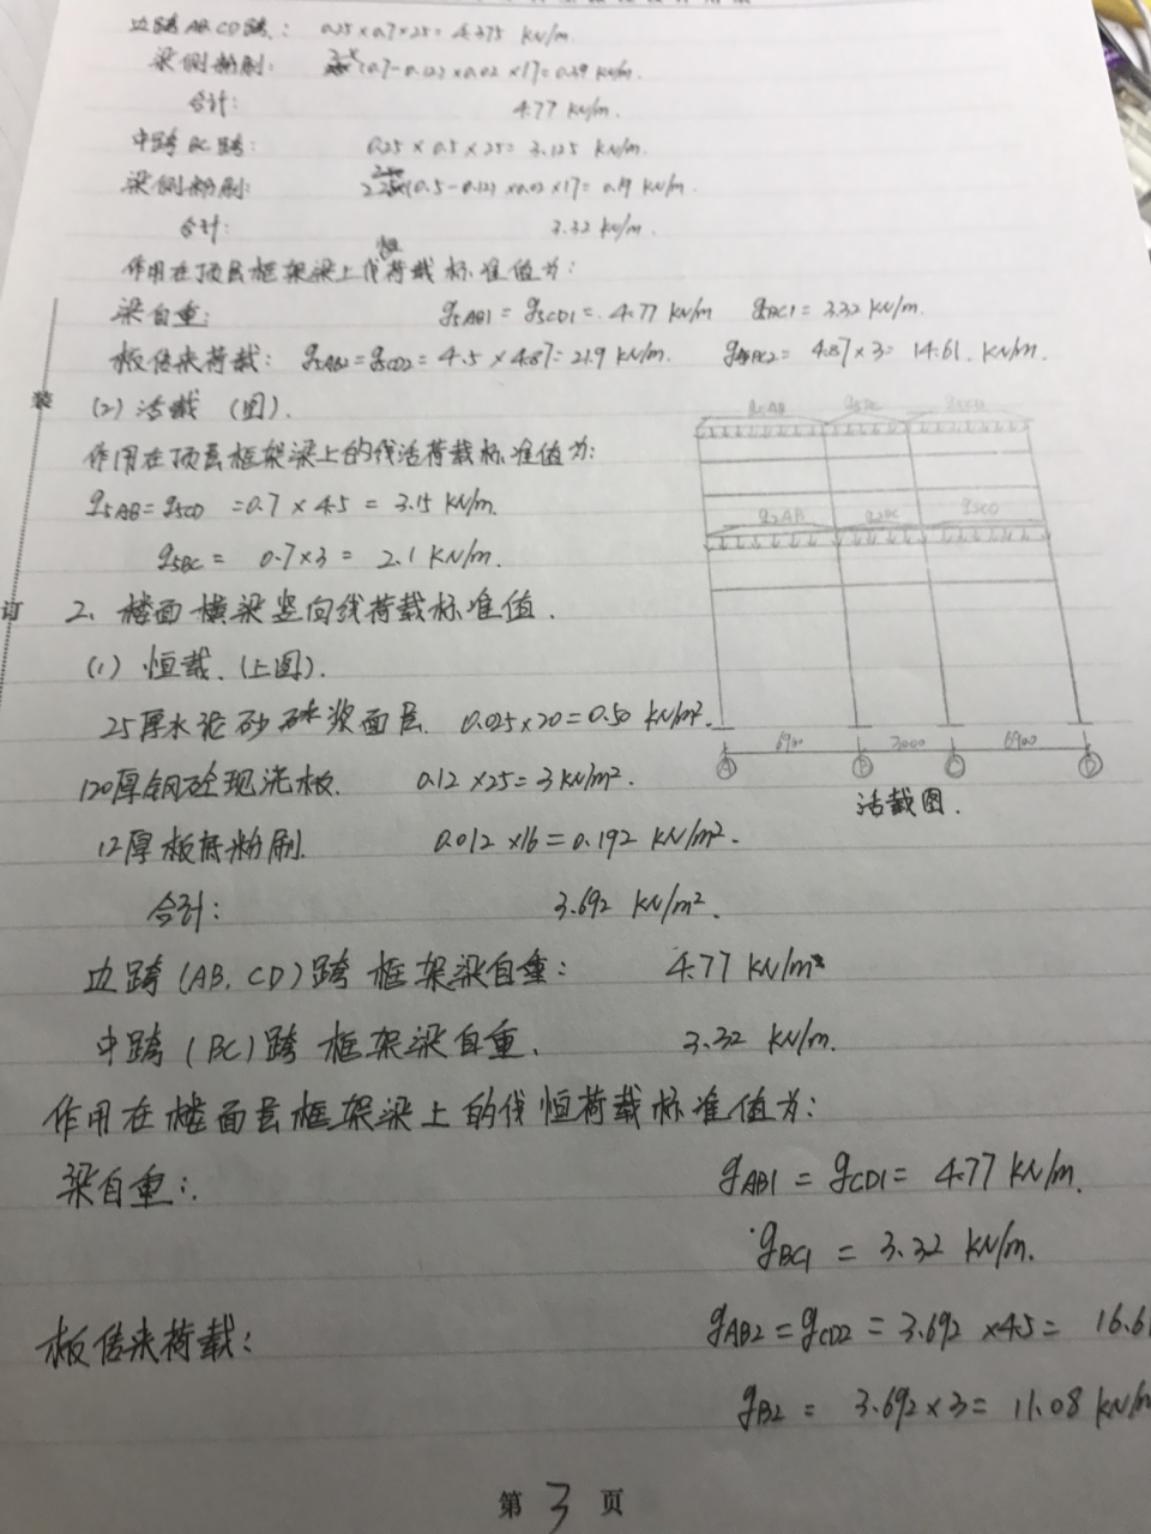 边跨AB CD跨: 0.25×0.7×25=4.375 KN/m.
梁侧粉刷: (0.7-0.12)×0.02×17=0.39 KN/m.
合计: 4.77 KN/m.
中跨BC跨: 0.25×0.5×25=3.125 KN/m.
梁侧粉刷: (0.5-0.12)×0.02×17=0.19 KN/m.
合计: 3.32 KN/m.
作用在顶层框架梁上线恒荷载标准值为:
梁自重: g5AB1=g5CD1=4.77 KN/m g5BC1=3.32 KN/m.
板传来荷载: g5AB2=g5CD2=4.5×4.87=21.9 KN/m. g5BC2=4.87×3=14.61.KN/m.
装
(2)活载(图).
作用在顶层框架梁上的线活荷载标准值为:
q5AB=q5CD=0.7×4.5=3.15 KN/m.
q5BC=0.7×3=2.1 KN/m.
q5AB q5BC q5CD
q2AB q2BC q5CD
订
2、楼面横梁竖向线荷载标准值.
(1)恒载.(上图).
25厚水泥砂浆面层. 0.025×20=0.50 KN/m².
120厚钢砼现浇板. 0.12×25=3KN/m².
12厚板底粉刷. 0.012×16=0.192 KN/m².
6900 3000 6900
A B C D
活载图.
合计: 3.692 KN/m².
边跨(AB,CD)跨框架梁自重: 4.77 KN/m
中跨(BC)跨框架梁自重. 3.32 KN/m.
作用在楼面层框架梁上的线恒荷载标准值为:
梁自重: gAB1=gCD1=4.77 KN/m.
gBC1=3.32 KN/m.
板传来荷载: gAB2=gCD2=3.692×4.5=16.61
gB2=3.692×3=11.08 KN/m
第 3 页